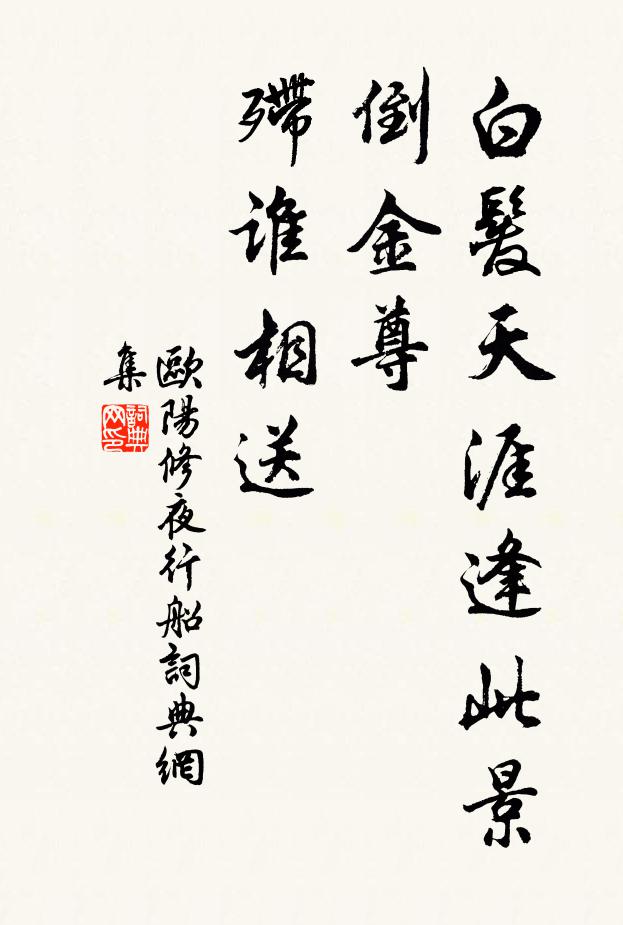 白髮天涯逢此景
倒金尊
殢誰相送
歐陽修夜行船詞典網
集
詞典
网印